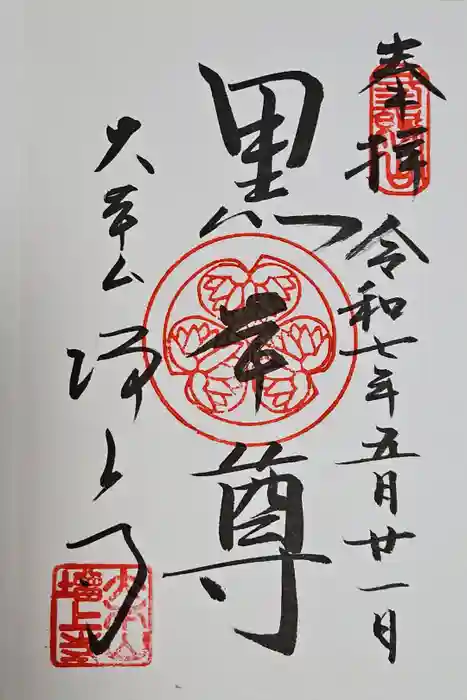 奉拝
令和七年五月廿一日
黒本尊
大本山
増上寺